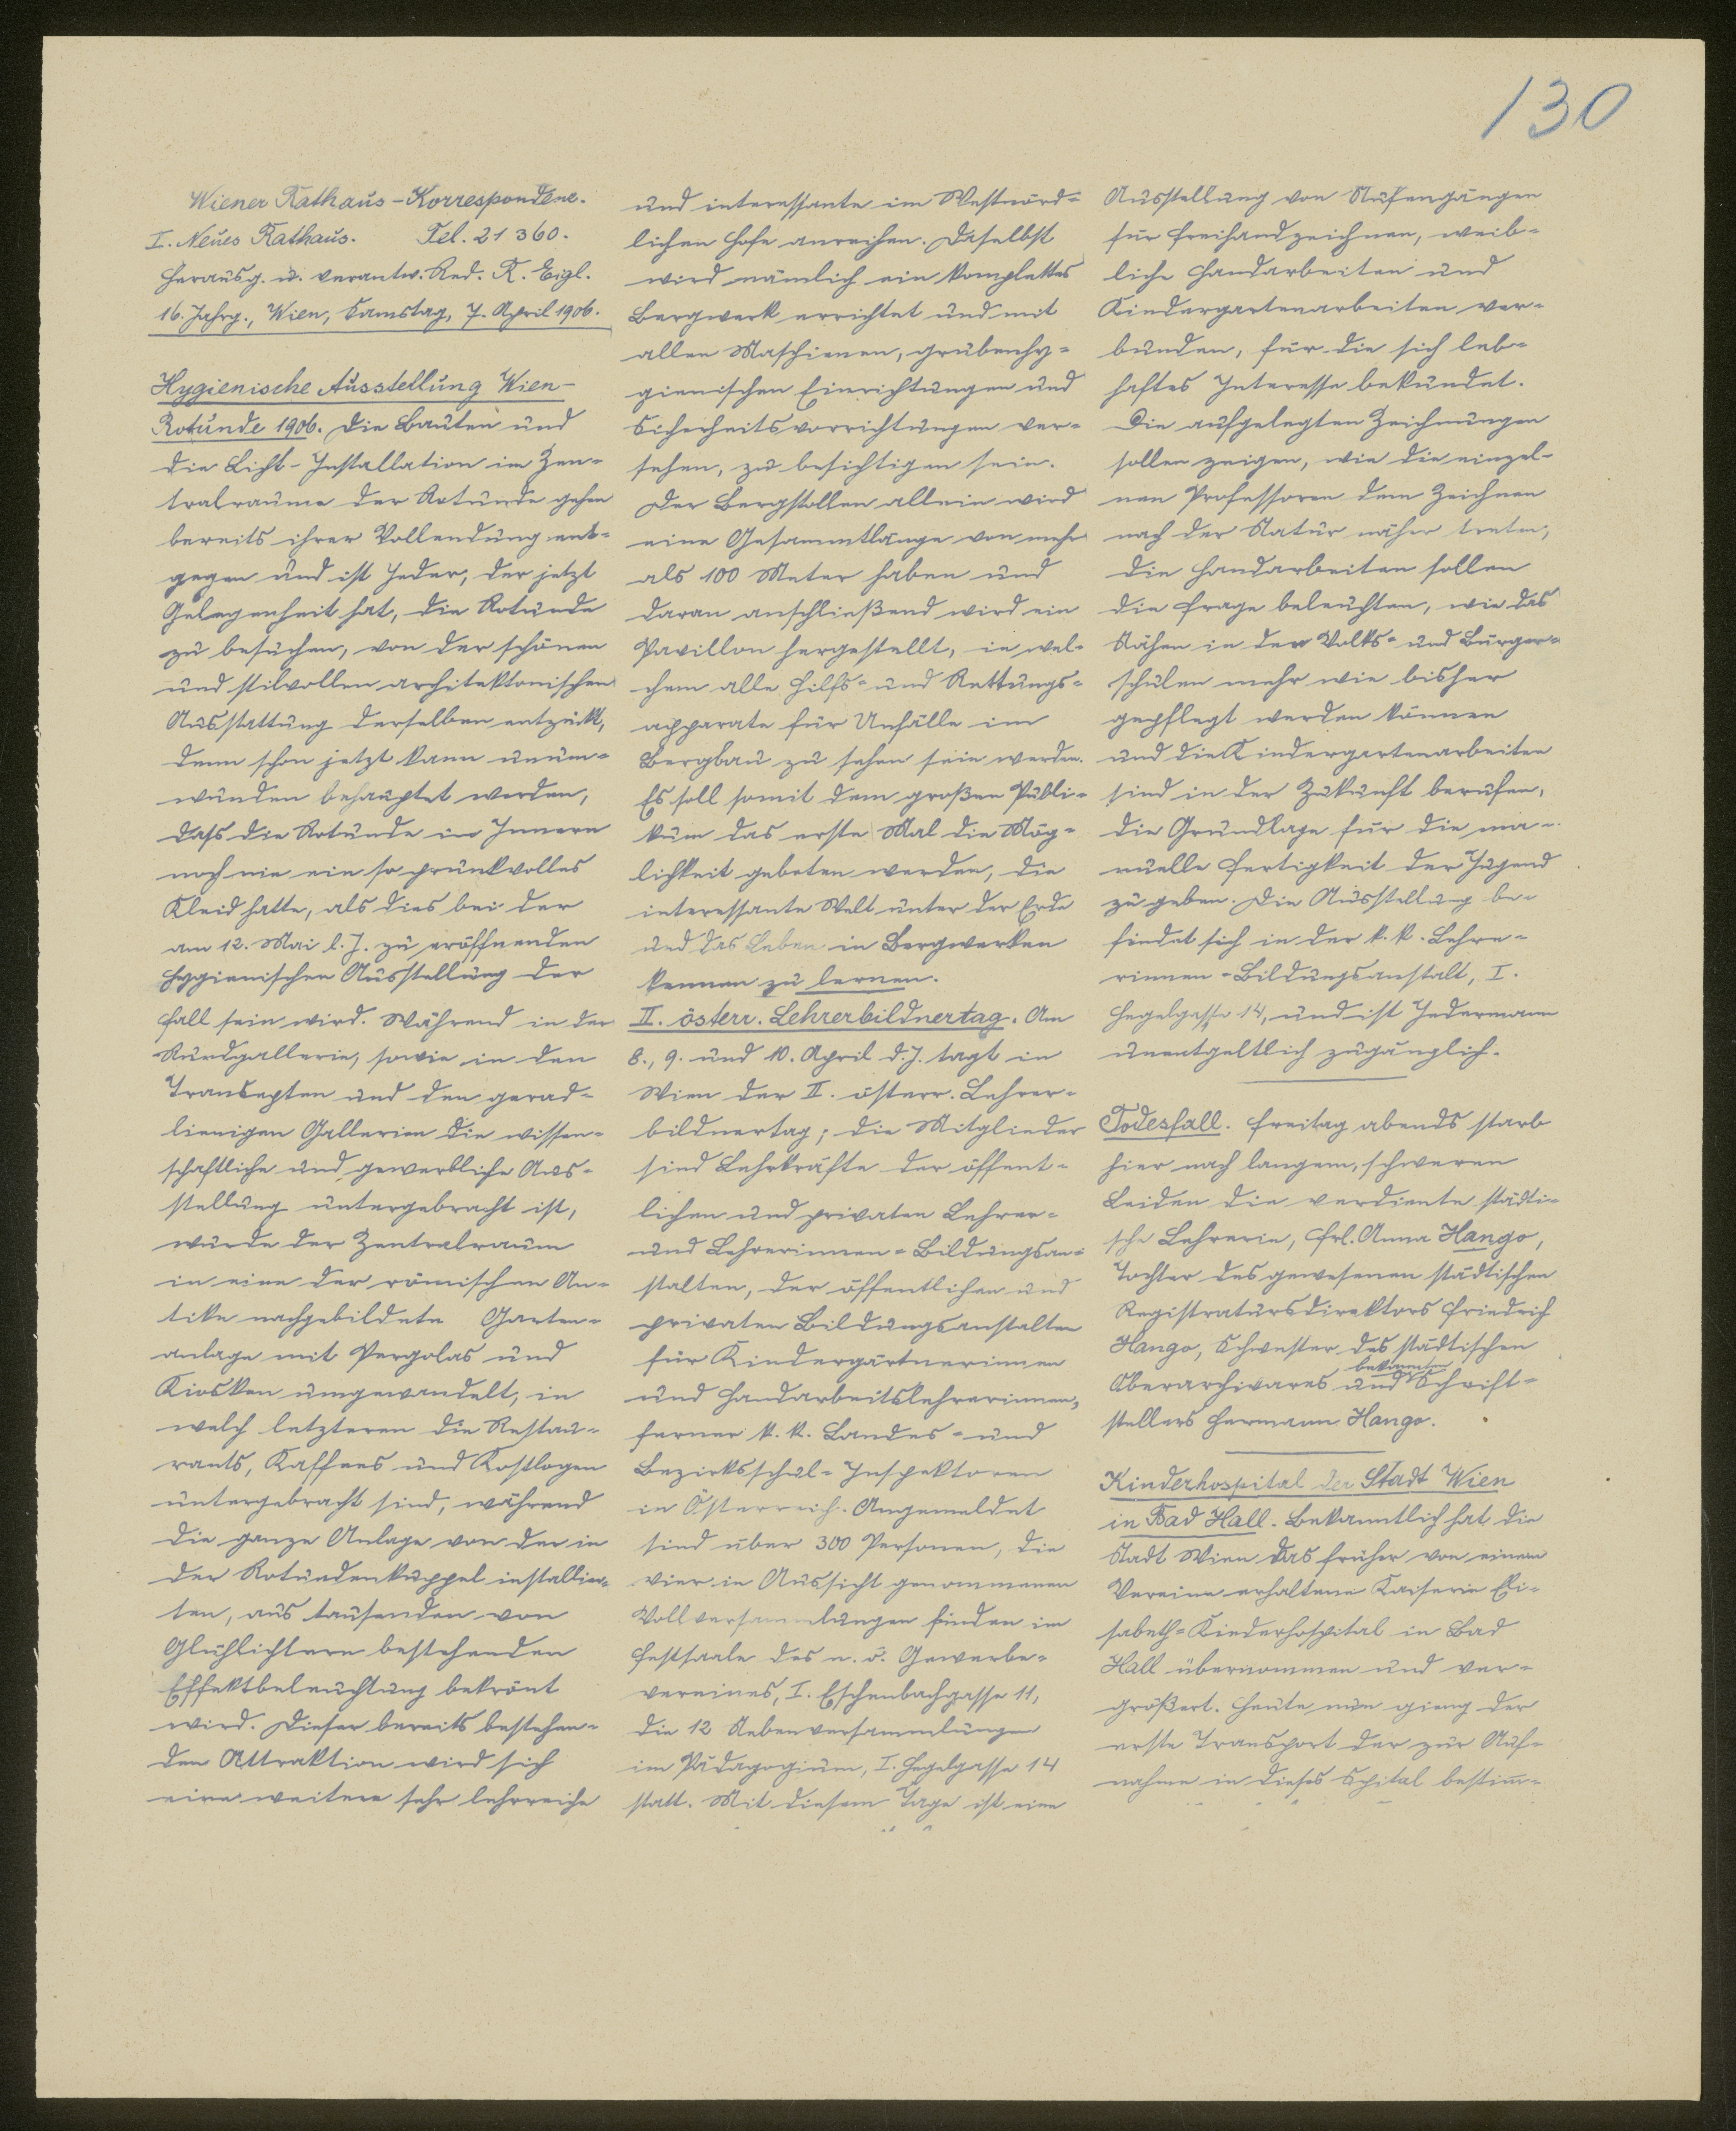 130
Wiener Rathaus-Korrespondenz.
I. Neues Rathaus. Tel. 21 360.
Herausg. u. verantw. Red. R. Eigl.
16. Jahrg., Wien, Samstag, 7. April 1906.
Hygienische Ausstellung Wien-
Rotunde 1906. Die Bauten und
die Licht-Installation im Zen-
tralraume der Rotunde gehen
bereits ihrer Vollendung ent-
gegen und ist Jeder, der jetzt
Gelegenheit hat, die Rotunde
zu besuchen, von der schönen
und stilvollen architektonischen
Ausstattung derselben entzückt,
denn schon jetzt kann unum-
wunden behauptet werden,
dass die Rotunde im Innern
noch nie ein so prunkvolles
Kleid hatte, als dies bei der
am 12. Mai l. J. zu eröffnenden
hygienischen Ausstellung der
Fall sein wird. Während in der
Rundgallerie, sowie in den
Transepten und den gerad-
linigen Gallerien die wissen-
schaftliche und gewerbliche Aus-
stellung untergebracht ist,
wurde der Zentralraum
in eine der römischen An-
tike nachgebildete Garten-
anlage mit Pergolas und
Kiosken umgewandelt, in
welch letzteren die Restau-
rants, Kaffees und Kostlogen
untergebracht sind, während
die ganze Anlage von der in
der Rotundenkuppel installier-
ten, aus tausenden von
Glühlichtern bestehenden
Effektbeleuchtung bekrönt
wird. Dieser bereits bestehen-
den Attraktion wird sich
eine weitere sehr lehrreiche
und interessante im Westnörd-
lichen Hofe anreihen. Daselbst
wird nämlich ein komplettes
Bergwerk errichtet und mit
allen Maschienen, grubenhy-
gienischen Einrichtungen und
Sicherheitsvorrichtungen ver-
sehen, zu besichtigen sein.
Der Bergstollen allein wird
eine Gesammtlänge von mehr
als 100 Meter haben und
daran anschließend wird ein
Pavillon hergestellt, in wel-
chem alle Hilfs- und Rettungs-
apparate für Unfälle im
Bergbau zu sehen sein werden.
Es soll somit dem großen Publi-
kum das erste Mal die Mög-
lichkeit geboten werden, die
interessante Welt unter der Erde
und das Leben in Bergwerken
kennen zu lernen.
II. österr. Lehrerbildnertag. Am
8., 9. und 10. April d. J. tagt in
Wien der II. österr. Lehrer-
bildnertag; die Mitglieder
sind Lehrkräfte der öffent-
lichen und privaten Lehrer-
und Lehrerinnen-Bildungsan-
stalten, der öffentlichen und
privaten Bildungsanstalten
für Kindergärtnerinnen
und Handarbeitslehrerinnen,
ferner k. k. Landes- und
Bezirksschul-Inspektoren
in Österreich. Angemeldet
sind über 300 Personen, die
vier in Aussicht genommenen
Vollversammlungen finden im
Festsaale des n. ö. Gewerbe-
vereines, I. Eschenbachgasse 11,
die 12 Nebenversammlungen
im Pädagogium, I. Hegelgasse 14
statt. Mit diesem Tage ist eine
Ausstellung von Stufengängen
für Freihandzeichnen, weib-
liche Handarbeiten und
Kindergartenarbeiten ver-
bunden, für die sich leb-
haftes Interesse bekundet.
Die aufgelegten Zeichnungen
sollen zeigen, wie die einzel-
nen Professoren dem Zeichnen
nach der Natur näher treten,
die Handarbeiten sollen
die Frage beleuchten, wie das
Nähen in den Volks- und Bürger-
schulen mehr wie bisher
gepflegt werden können
und die Kindergartenarbeiten
sind in der Zukunft berufen,
die Grundlage für die ma-
nuelle Fertigkeit der Jugend
zu geben. Die Ausstellung be-
findet sich in der k. k. Lehre-
rinnen-Bildungsanstalt, I.
Hegelgasse 14, und ist Jedermann
unentgeltlich zugänglich.
Todesfall. Freitag abends starb
hier nach langem, schweren
Leiden die verdiente städti-
sche Lehrerin, Frl. Anna Hango,
Tochter des gewesenen städtischen
Registratursdirektors Friedrich
Hango, Schwester des städtischen
bekannten
Oberarchivares und Schrift-
stellers Hermann Hango.
Kinderhospital der Stadt Wien
in Bad Hall. Bekanntlich hat die
Stadt Wien das früher von einem
Vereine erhaltene Kaiserin Eli-
sabeth-Kinderhospital in Bad
Hall übernommen und ver-
größert. Heute nun gieng der
erste Transport der zur Auf-
nahme in dieses Spital bestim-